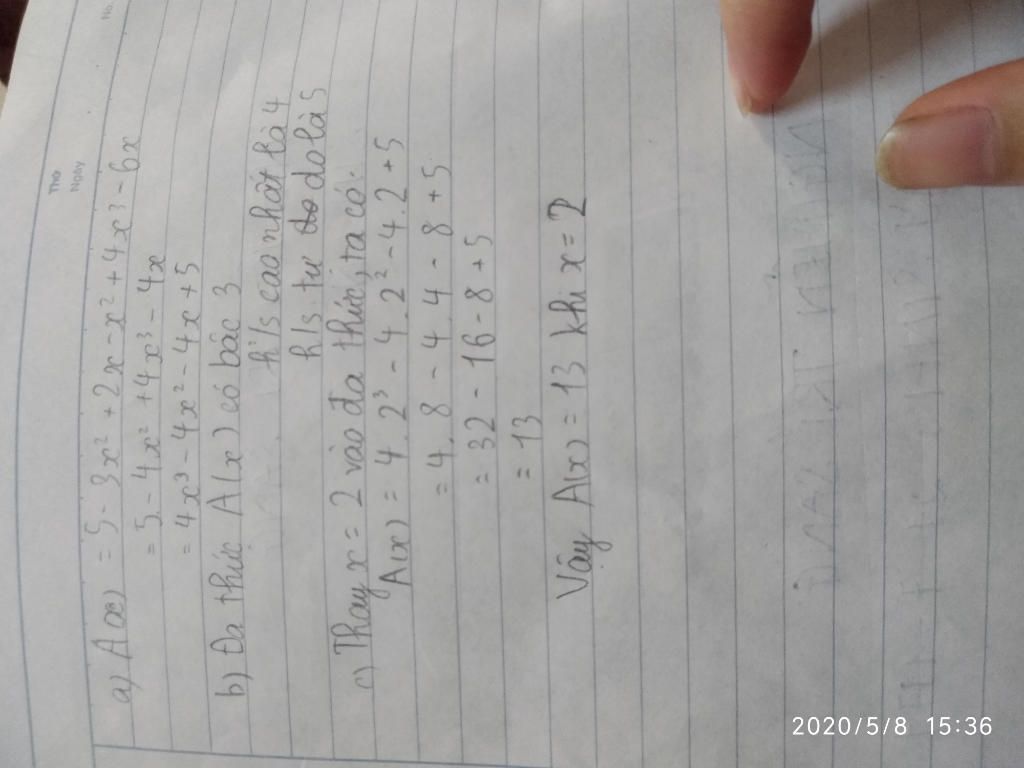 No.
Thứ
Ngày
a) A(x) = 5 - 3x² + 2x - x² + 4x³ - 6x
= 5 - 4x² + 4x³ - 4x
= 4x³ - 4x² - 4x + 5
b) Đa thức A(x) có bậc 3
h/s cao nhất là 4
h/s tự do là 5
c) Thay x = 2 vào đa thức, ta có:
A(x) = 4.2³ - 4.2² - 4.2 + 5
= 4.8 - 4.4 - 8 + 5
= 32 - 16 - 8 + 5
= 13
Vậy A(x) = 13 khi x = 2
2020/5/8 15:36